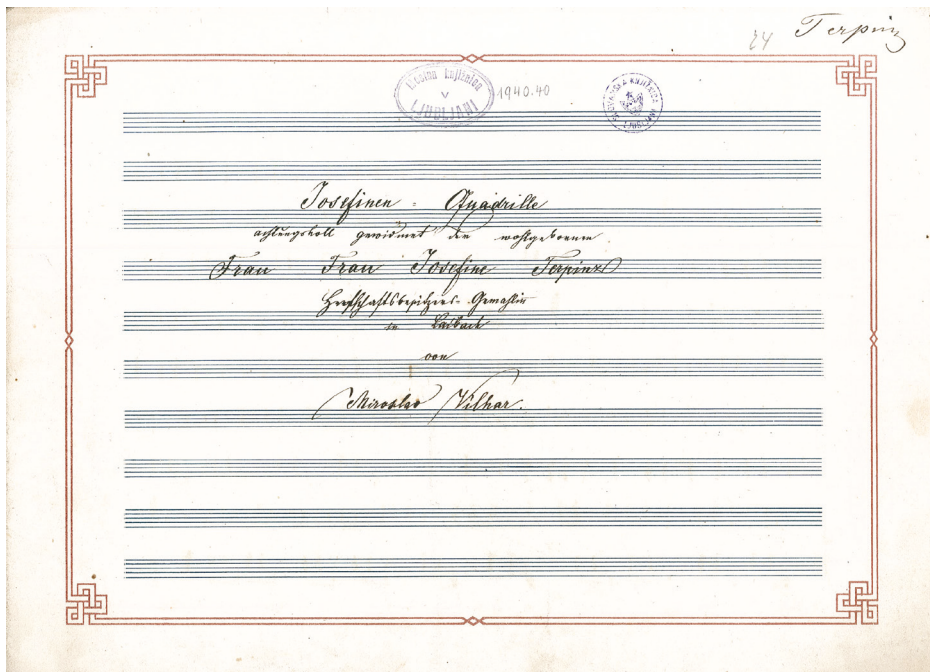 24 Terpinz
Mestna knjižnica
v
LJUBLJANI
1940.40
SLOVANSKA KNJIŽNICA
LJUBLJANA
Josefinen = Quadrille
achtungsvoll gewidmet der wohlgebornen
Frau Frau Josefine Terpinz
Herrschaftsbesitzers-Gemahlin
in Laibach
von
Miroslav Vilhar.